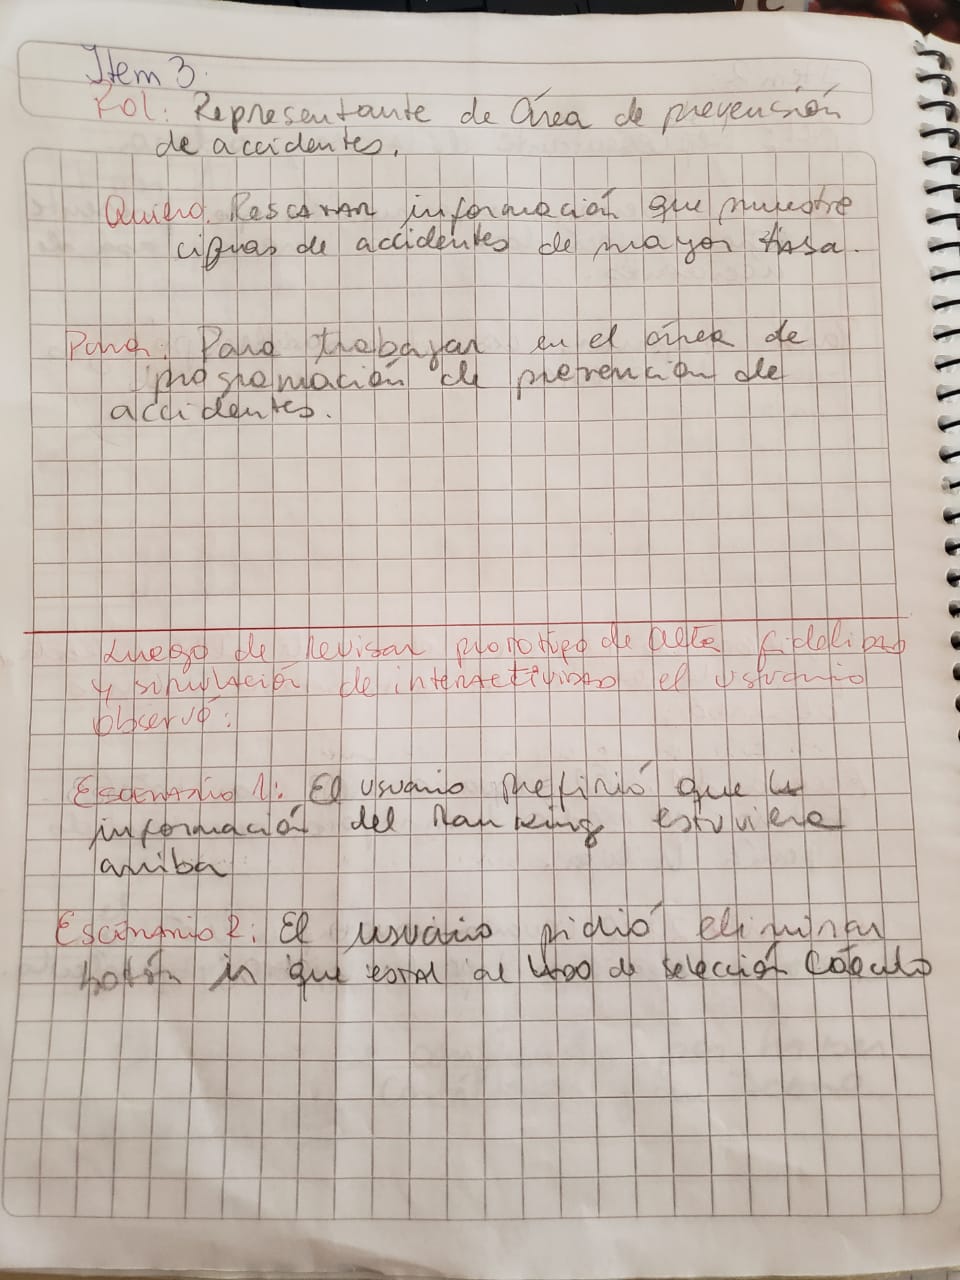 Item 3.
Rol: Representante de Área de prevensión
de accidentes.
Quiero. Rescatar información que muestre
cifras de accidentes de mayor tasa.
Para: Para trabajar en el área de
programación de prevención de
accidentes.
Luego de revisar prototipo de alta fidelidad
y simulación de interactividad el usuario
observó:
Escenario 1: El usuario prefirió que la
información del Ranking estuviera
arriba
Escenario 2: El usuario pidió eliminar
botón que al lado de selección